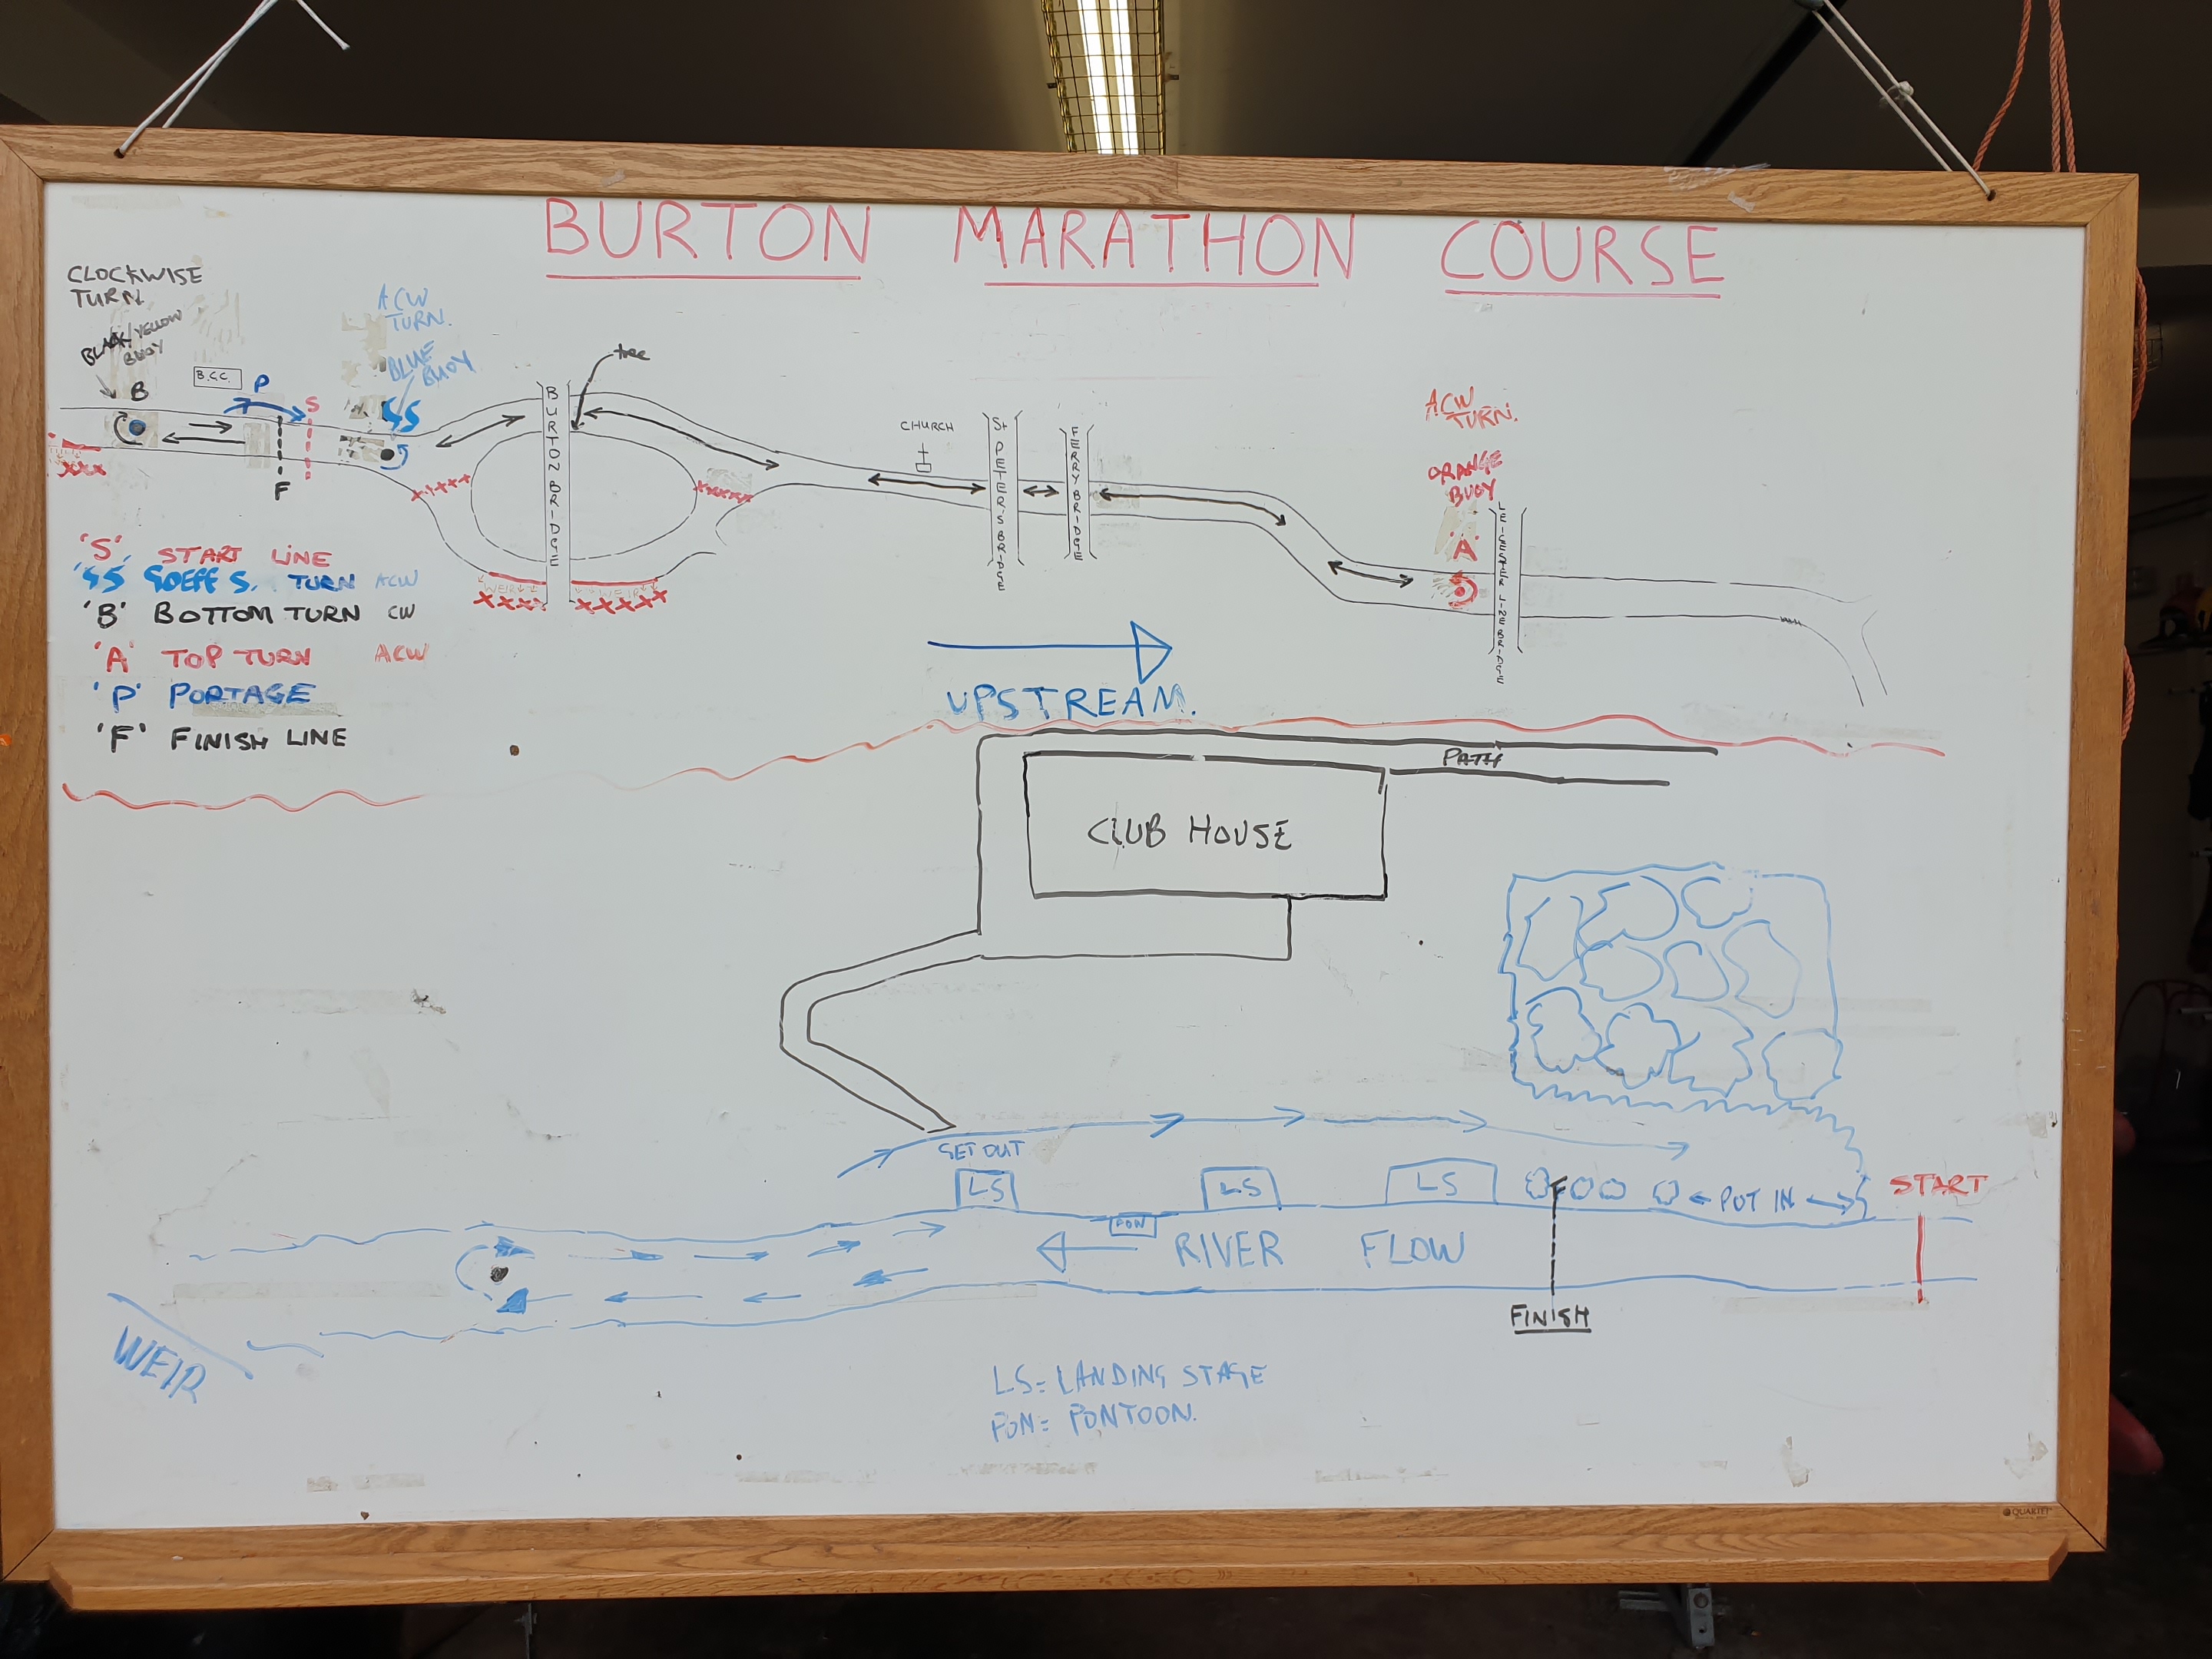 BURTON MARATHON COURSE
CLOCKWISE
TURN
BLACK/YELLOW
BUOY
B
B.C.C.
P
S
F
ACW
TURN.
BLUE
BUOY
tree
BURTON BRIDGE
CHURCH
St PETER'S BRIDGE
FERRY BRIDGE
ACW
TURN.
ORANGE
BUOY
'A'
xxx
xxxxx
xxxxx
WEIR
WEIR
xxxx
xxxxx
'S' START LINE
'GS' GOEFF S. TURN ACW
'B' BOTTOM TURN CW
'A' TOP TURN ACW
'P' PORTAGE
'F' FINISH LINE
UPSTREAM.
PATH
CLUB HOUSE
GET OUT
LS
LS
LS
F
← PUT IN →
START
PON
RIVER FLOW
FINISH
WEIR
LS= LANDING STAGE
PON= PONTOON.
QUARTET